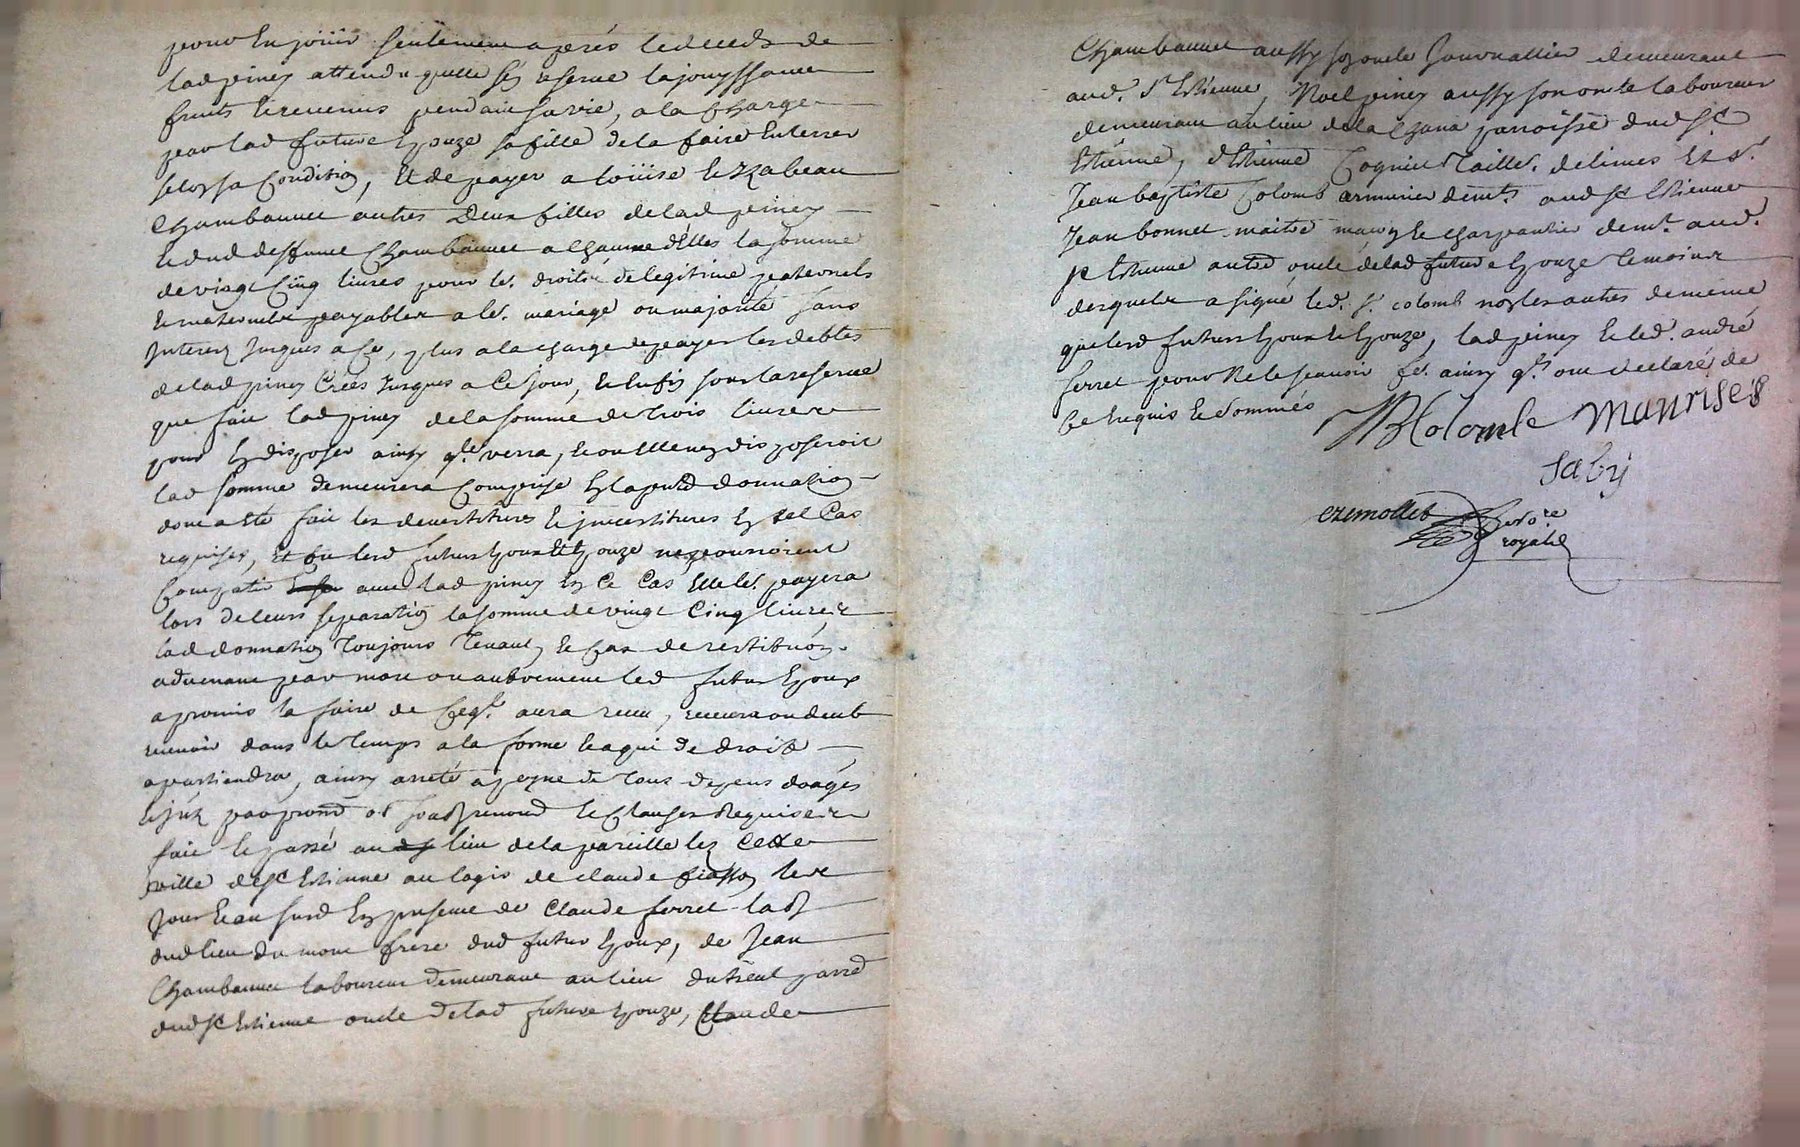 pour en joüir seulement apres le deceds de
lad piney attendu quelle s'en reserve la jouyssance
fruits et revenus pendant sa vie, a la charge
par lad future Epouze sa fille de la faire Enterrer
selon sa Condition, Et de payer a Loüise et Izabeau
Chambannee autres Deux filles delad piney
et dud deffunct Chambannee a chacune d'Elles la somme
de vingt Cinq livres pour les droits de legitime paternels
et maternels payables a le. mariage ou majorité sans
Interest Jusques a Ce, plus a la charge de payer les debtes
delad piney Créés Jusques a Ce jour, et Enfin sous la reserve
que fait lad piney de la somme de trois livres
pour En disposer ainsy qle verra, et ou Elle n'en disposeroit
lad somme demeurera Comprise En la pnte donnation
dont a Eté fait les devestitures et investitures En tel Cas
requises, Et ou lesd futurs Epoux et Epouze ne pourroient
Compatir avec lad piney En Ce Cas Elle les payera
lors de leurs separation la somme de vingt Cinq livres
lad donnation toujours tenant, le Cas de restituon
advenant par mort ou autrement led futur Epoux
a promis la faire de Ce qt. aura receu, recevra ou deub
recevoir dans le temps a la forme et a qui de droit
apartiendra, ainsy arreté a peyne de tous depens doages
fait et passé au lieu de la pareille lez Cette
ville de St Estienne au logis de claude fiasson les
Jour et an susd En presence de Claude ferret lab
dud lieu du mont frere dud futur Epoux, de Jean
Chambannee laboureur demeurant au lieu du treul parred
dud St Estienne oncle delad future Epouze, Claude
Chambannee aussy son oncle Journallier demeurant
aud. St Estienne, Noel piney aussy son oncle laboureur
demeurant au lieu de la Chana parroisse dud St.
Estienne, Estienne Cognier tailler. de limes Et Sr.
Jean baptiste Colomb armurier demt. aud St Estienne
Jean bonnet maitre maçon et charpentier demt. aud.
St Etienne autre oncle delad future Epouze temoins
desquels a signé led. Sr. colomb non les autres de meme
que lesd futurs Epoux et Epouze, lad piney et led. andré
ferret pour ne le scavoir fe. ainsy qt. ont declaré de
Ce Enquis et sommés
JB Colombe Manrises
Saby
Ezemollet
royal